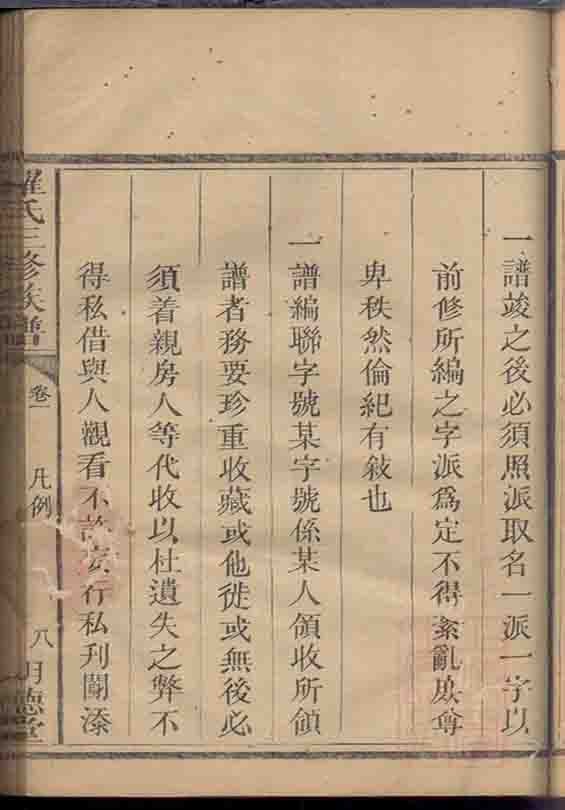 一譜竣之後必須照派取名一派一字以
前修所編之字派為定不得紊亂庶尊
卑秩然倫紀有敍也
一譜編聯字號某字號係某人領收所領
譜者務要珍重收藏或他徙或無後必
須着親房人等代收以杜遺失之弊不
得私借與人觀看不許妄行私刋闘添
羅氏三修族譜
卷一
凡例
八
明德堂